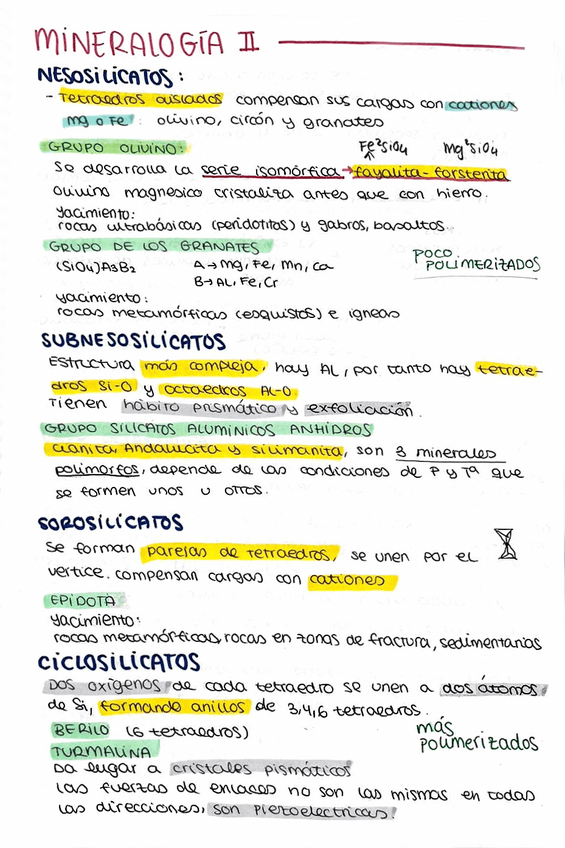 MINERALOGÍA II
NESOSILICATOS:
- Tetraedros aislados compensan sus cargas con cationes
Mg o Fe : olivino, circón y granates
GRUPO OLIVINO: Fe²SiO4 Mg²SiO4
Se desarolla la serie isomórfica → fayalita-forsterita
Olivino magnesico cristaliza antes que con hierro.
yacimiento:
rocas ultrabásicas (peridotitos) y gabros, basaltos.
GRUPO DE LOS GRANATES
POCO
POLIMERIZADOS
(SiO4)A3B2 A → Mg, Fe, Mn, Ca
B → AL, Fe, Cr
yacimiento:
rocas metamórficas (esquistos) e igneas
SUBNESOSILICATOS
Estructura más compleja, hay AL, por tanto hay tetrae-
dros Si-O y octaedros AL-O
Tienen hábito prismático y exfoliación.
GRUPO SILICATOS ALUMINICOS ANHIDROS
Cianita, Andalucita y silimanita, son 3 minerales
polimorfos, depende de las condiciones de P y Tª que
se formen unos u otros.
SOROSILICATOS
Se forman parejas de tetraedros, se unen por el
vertice. compensan cargas con cationes
EPIDOTA
yacimiento:
rocas metamórficas, rocas en zonas de fractura, sedimentarias
CICLOSILICATOS
Dos oxígenos de cada tetraedro se unen a dos átomos
de Si, formando anillos de 3,4,6 tetraedros.
BERILO (6 tetraedros)
más
polimerizados
TURMALINA
Da lugar a cristales pismáticos
las fuerzas de enlaces no son las mismas en todas
las direcciones, son piezoelectricas!